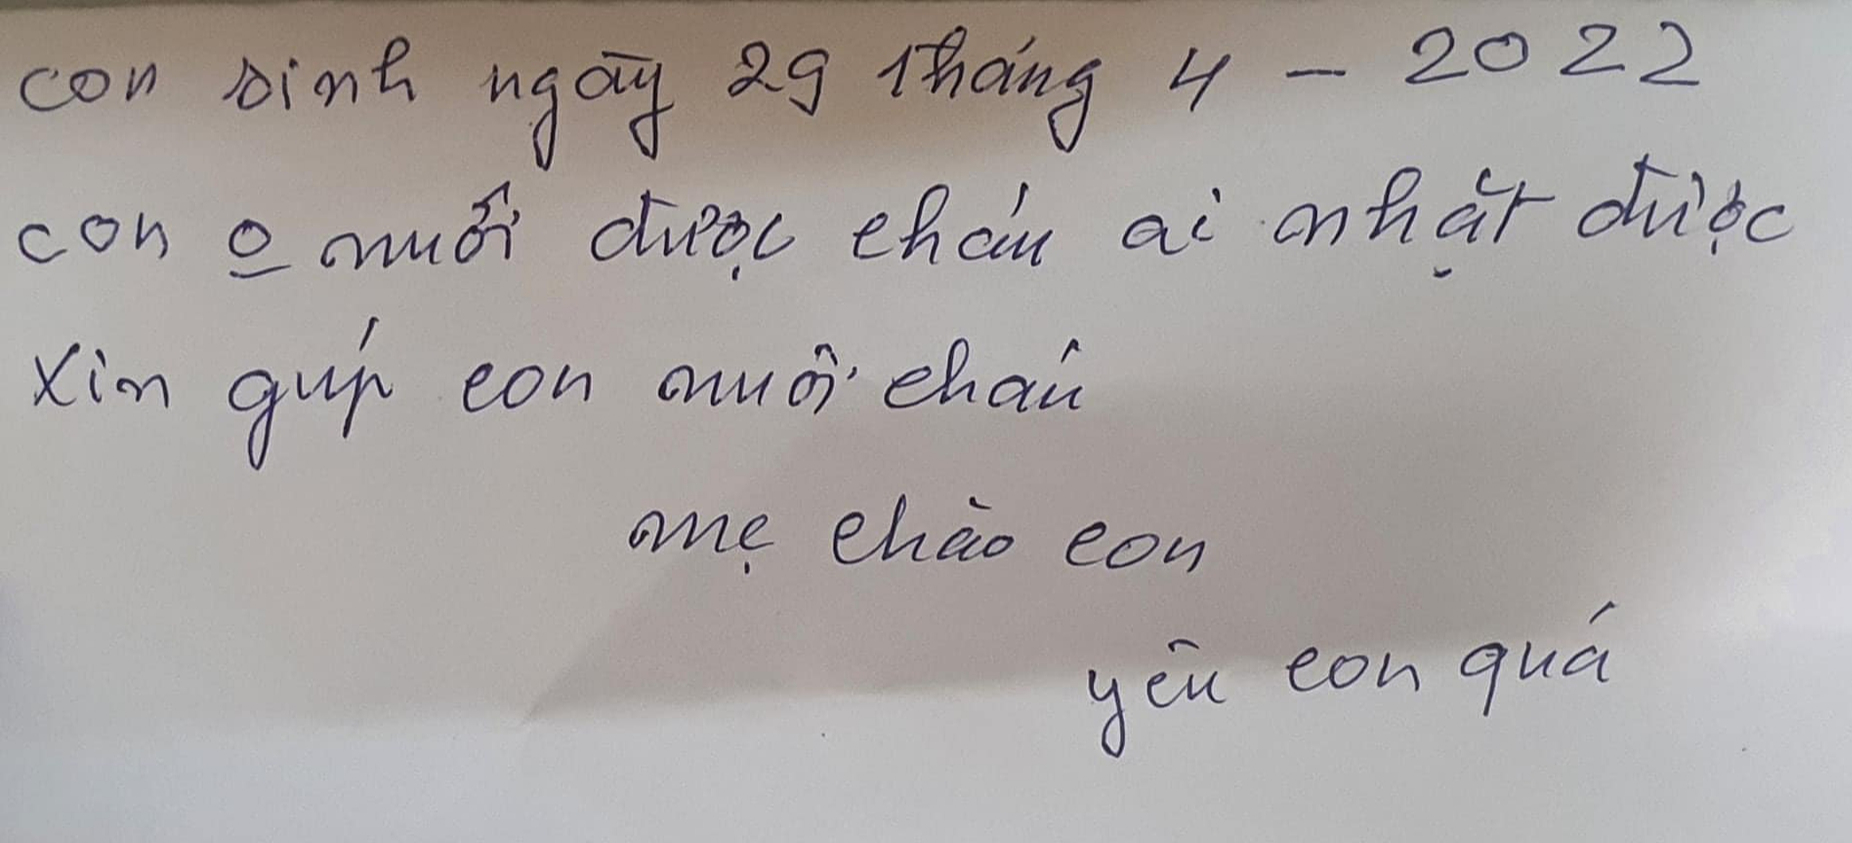 con sinh ngày 29 tháng 4 - 2022
con o nuôi được cháu ai nhặt được
Xin gúp con nuôi cháu
mẹ chào con
yêu con quá